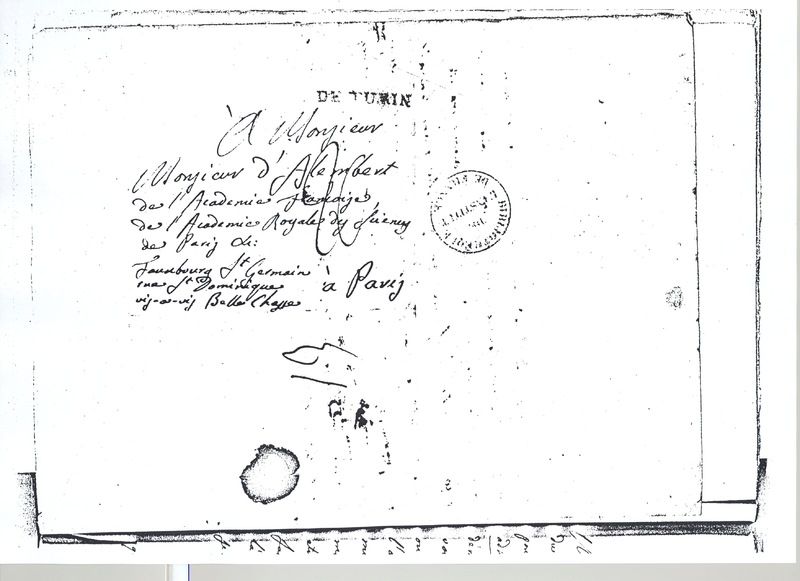 DE TURIN
À Monsieur
Monsieur d'Alembert
de l'Academie françoise,
de l'Academie Royale des Sciences
de Paris &c:
Fauxbourg St Germain
rue St Dominique
vis-a-vis Belle Chasse
à Paris
BIBLIOTHEQUE DE L'INSTITUT DE FRANCE